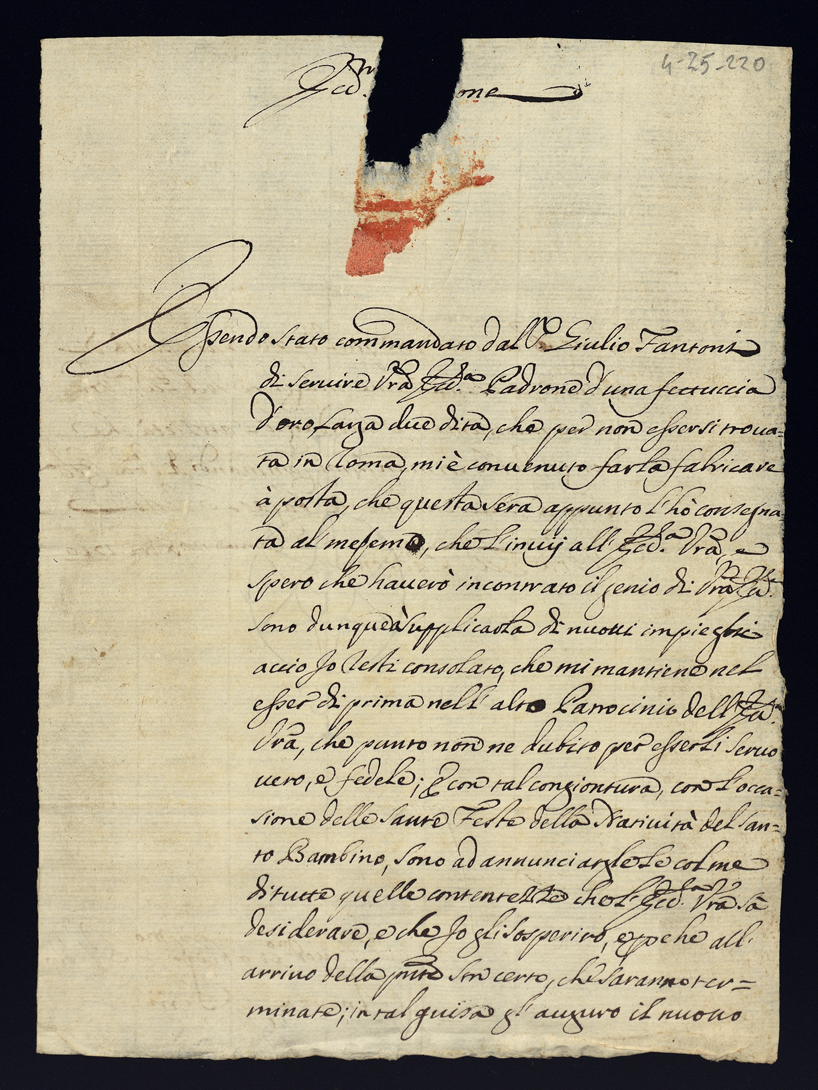 4-25-220
Essendo stato commandato dal S.r Giulio Fantoni
di servire Vrã Ecc.za Padrone d'una fettuccia
d'oro larga due dita, che per non essersi trova-
ta in Roma, mi è convenuto farla fabricare
à posta, che questa sera appunto l'hò consegna-
ta al mesemo, che l'invij all'Ecc.za Vrã, e
spero che haverò incontrato il genio di Vrã Ecc.za
sono dunque à supplicarla di nuovi impieghi
accio Jo resti consolato, che mi mantiene nel
esser di prima nell'alto Patrocinio dell'Ecc.za
Vrã, che punto non ne dubito per esserli servo
vero, e fedele; e con tal congiontura, con l'occa-
sione delle sante Feste della Natività del San-
to Bambino, sono ad annunciargle le colme
di tutte quelle contentezze che l'Ecc.za Vrã sà
desiderare, e che Jo gli sosperiro, e poche all'
arrivo della pñte son certo, che saranno ter-
minate; in tal guisa gl'auguro il nuovo